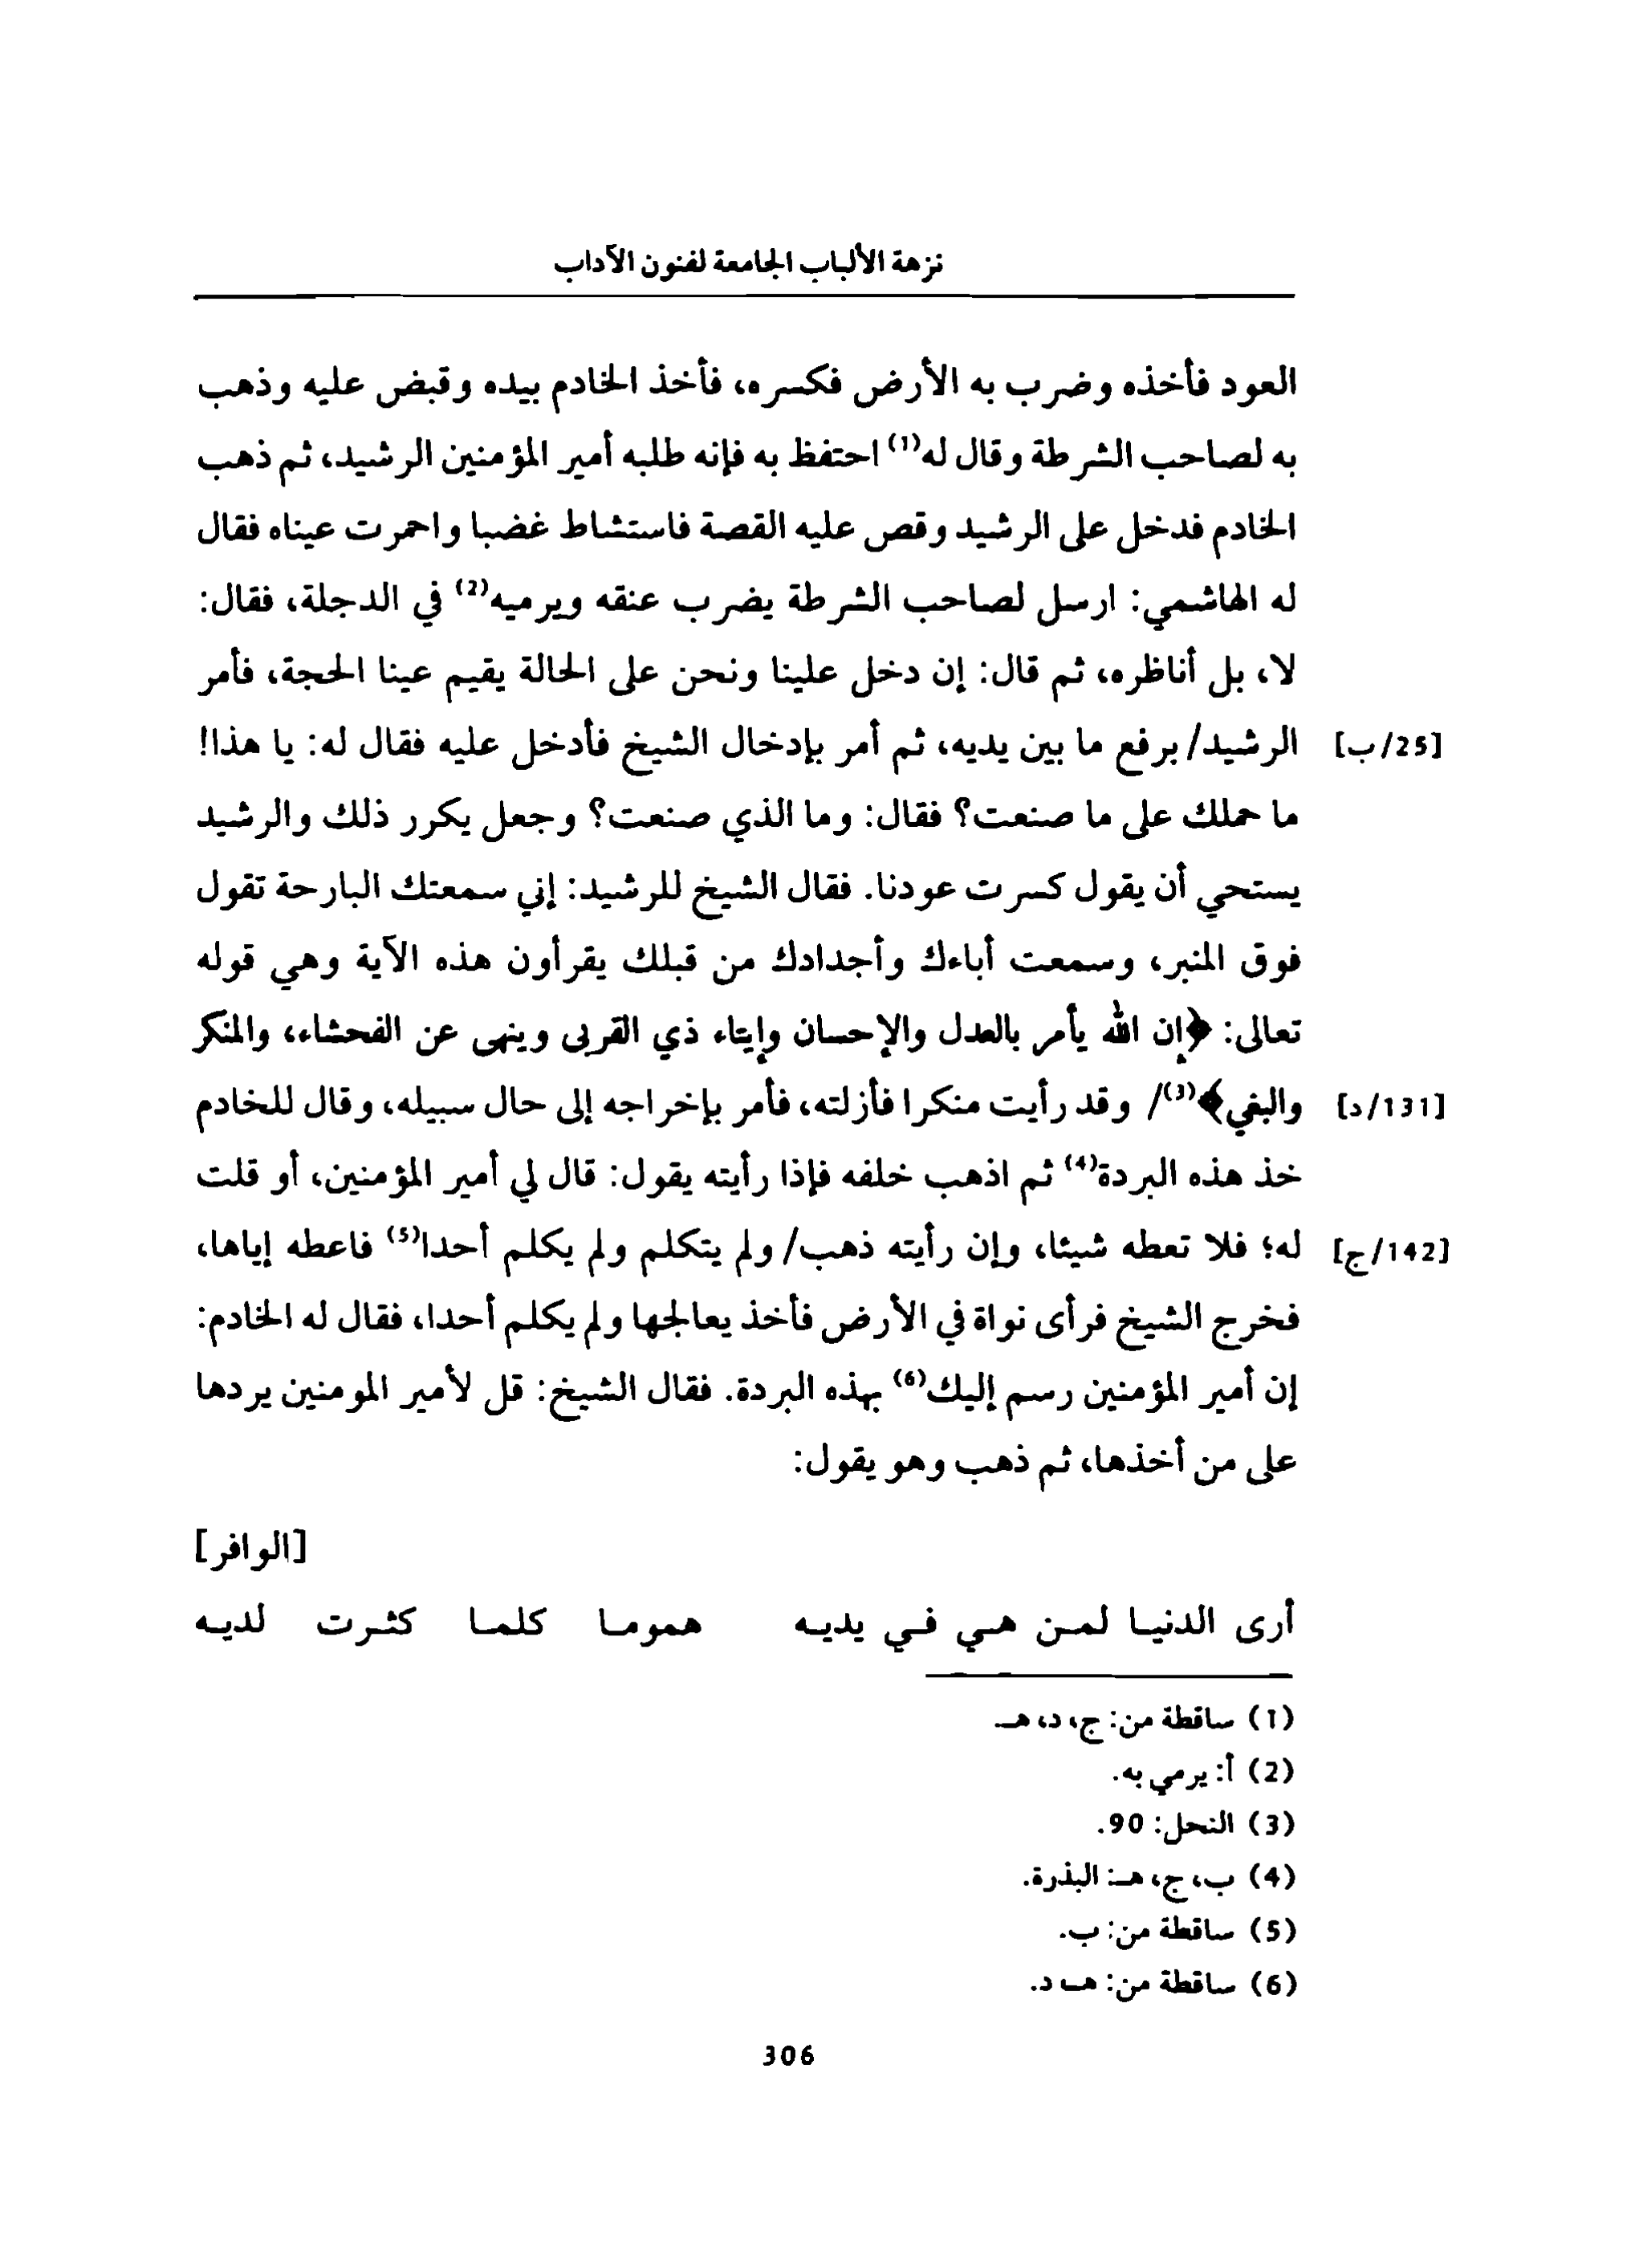 نزهة الألباب الجامعة لفنون الآداب
العود فأخذه وضرب به الأرض فكسره، فأخذ الخادم بيده وقبض عليه وذهب
به لصاحب الشرطة وقال له(1) احتفظ به فإنه طلبه أمير المؤمنين الرشيد، ثم ذهب
الخادم فدخل على الرشيد وقص عليه القصة فاستشاط غضبا واحمرت عيناه فقال
له الهاشمي: ارسل لصاحب الشرطة يضرب عنقه ويرميه(2) في الدجلة، فقال:
لا، بل أناظره، ثم قال: إن دخل علينا ونحن على الحالة يقيم عينا الحجة، فأمر
الرشيد/ برفع ما بين يديه، ثم أمر بإدخال الشيخ فأدخل عليه فقال له: يا هذا! [25/ب]
ما حملك على ما صنعت؟ فقال: وما الذي صنعت؟ وجعل يكرر ذلك والرشيد
يستحي أن يقول كسرت عودنا. فقال الشيخ للرشيد: إني سمعتك البارحة تقول
فوق المنبر، وسمعت أباءك وأجدادك من قبلك يقرأون هذه الآية وهي قوله
تعالى: ﴿إن الله يأمر بالعدل والإحسان وإيتاء ذي القربى وينهى عن الفحشاء، والمنكر
والبغي﴾(3)/ وقد رأيت منكرا فأزلته، فأمر بإخراجه إلى حال سبيله، وقال للخادم [131/د]
خذ هذه البردة(4) ثم اذهب خلفه فإذا رأيته يقول: قال لي أمير المؤمنين، أو قلت
له؛ فلا تعطه شيئا، وإن رأيته ذهب/ ولم يتكلم ولم يكلم أحدا(5) فاعطه إياها، [142/ج]
فخرج الشيخ فرأى نواة في الأرض فأخذ يعالجها ولم يكلم أحدا، فقال له الخادم:
إن أمير المؤمنين رسم إليك(6) بهذه البردة. فقال الشيخ: قل لأمير المومنين يردها
على من أخذها، ثم ذهب وهو يقول:
[الوافر]
أرى الدنيا لمن هي في يديه هموما كلما كثرت لديه
(1) ساقطة من: ج، د، هـ
(2) أ: يرمي به.
(3) النحل: 90.
(4) ب، ج، هـ: البذرة.
(5) ساقطة من: ب.
(6) ساقطة من: هـ د.
306